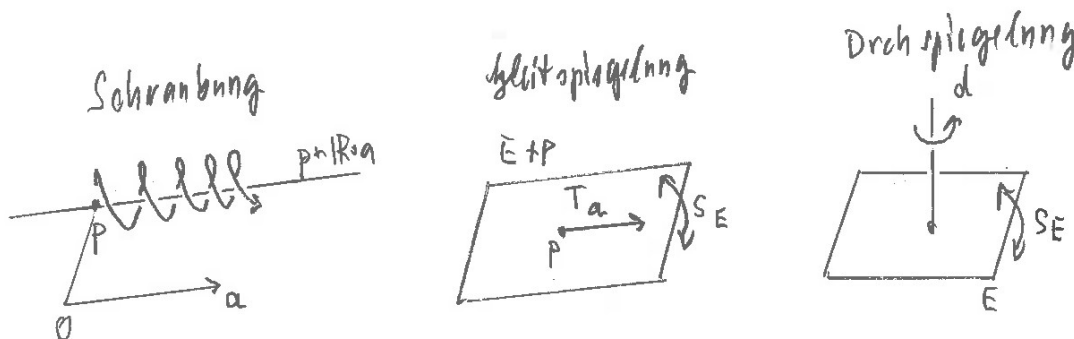 Schraubung
p+ℝ·a
P
O
a
Gleitspiegelung
E+P
T_a
P
S_E
Drehspiegelung
d
S_E
E